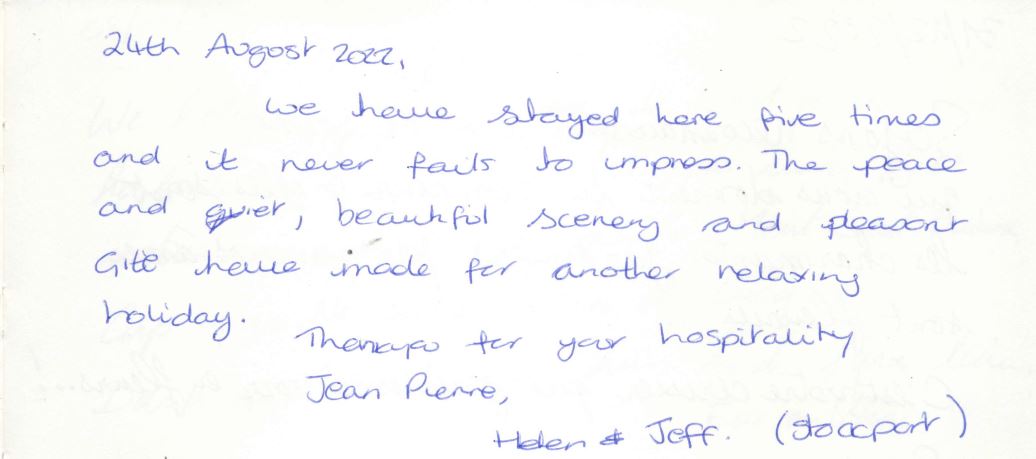 24th August 2022,
We have stayed here five times
and it never fails to impress. The peace
and quiet, beautiful scenery and pleasant
Gite have made for another relaxing
holiday.
Thankyou for your hospitality
Jean Pierre,
Helen & Jeff. (Stockport)